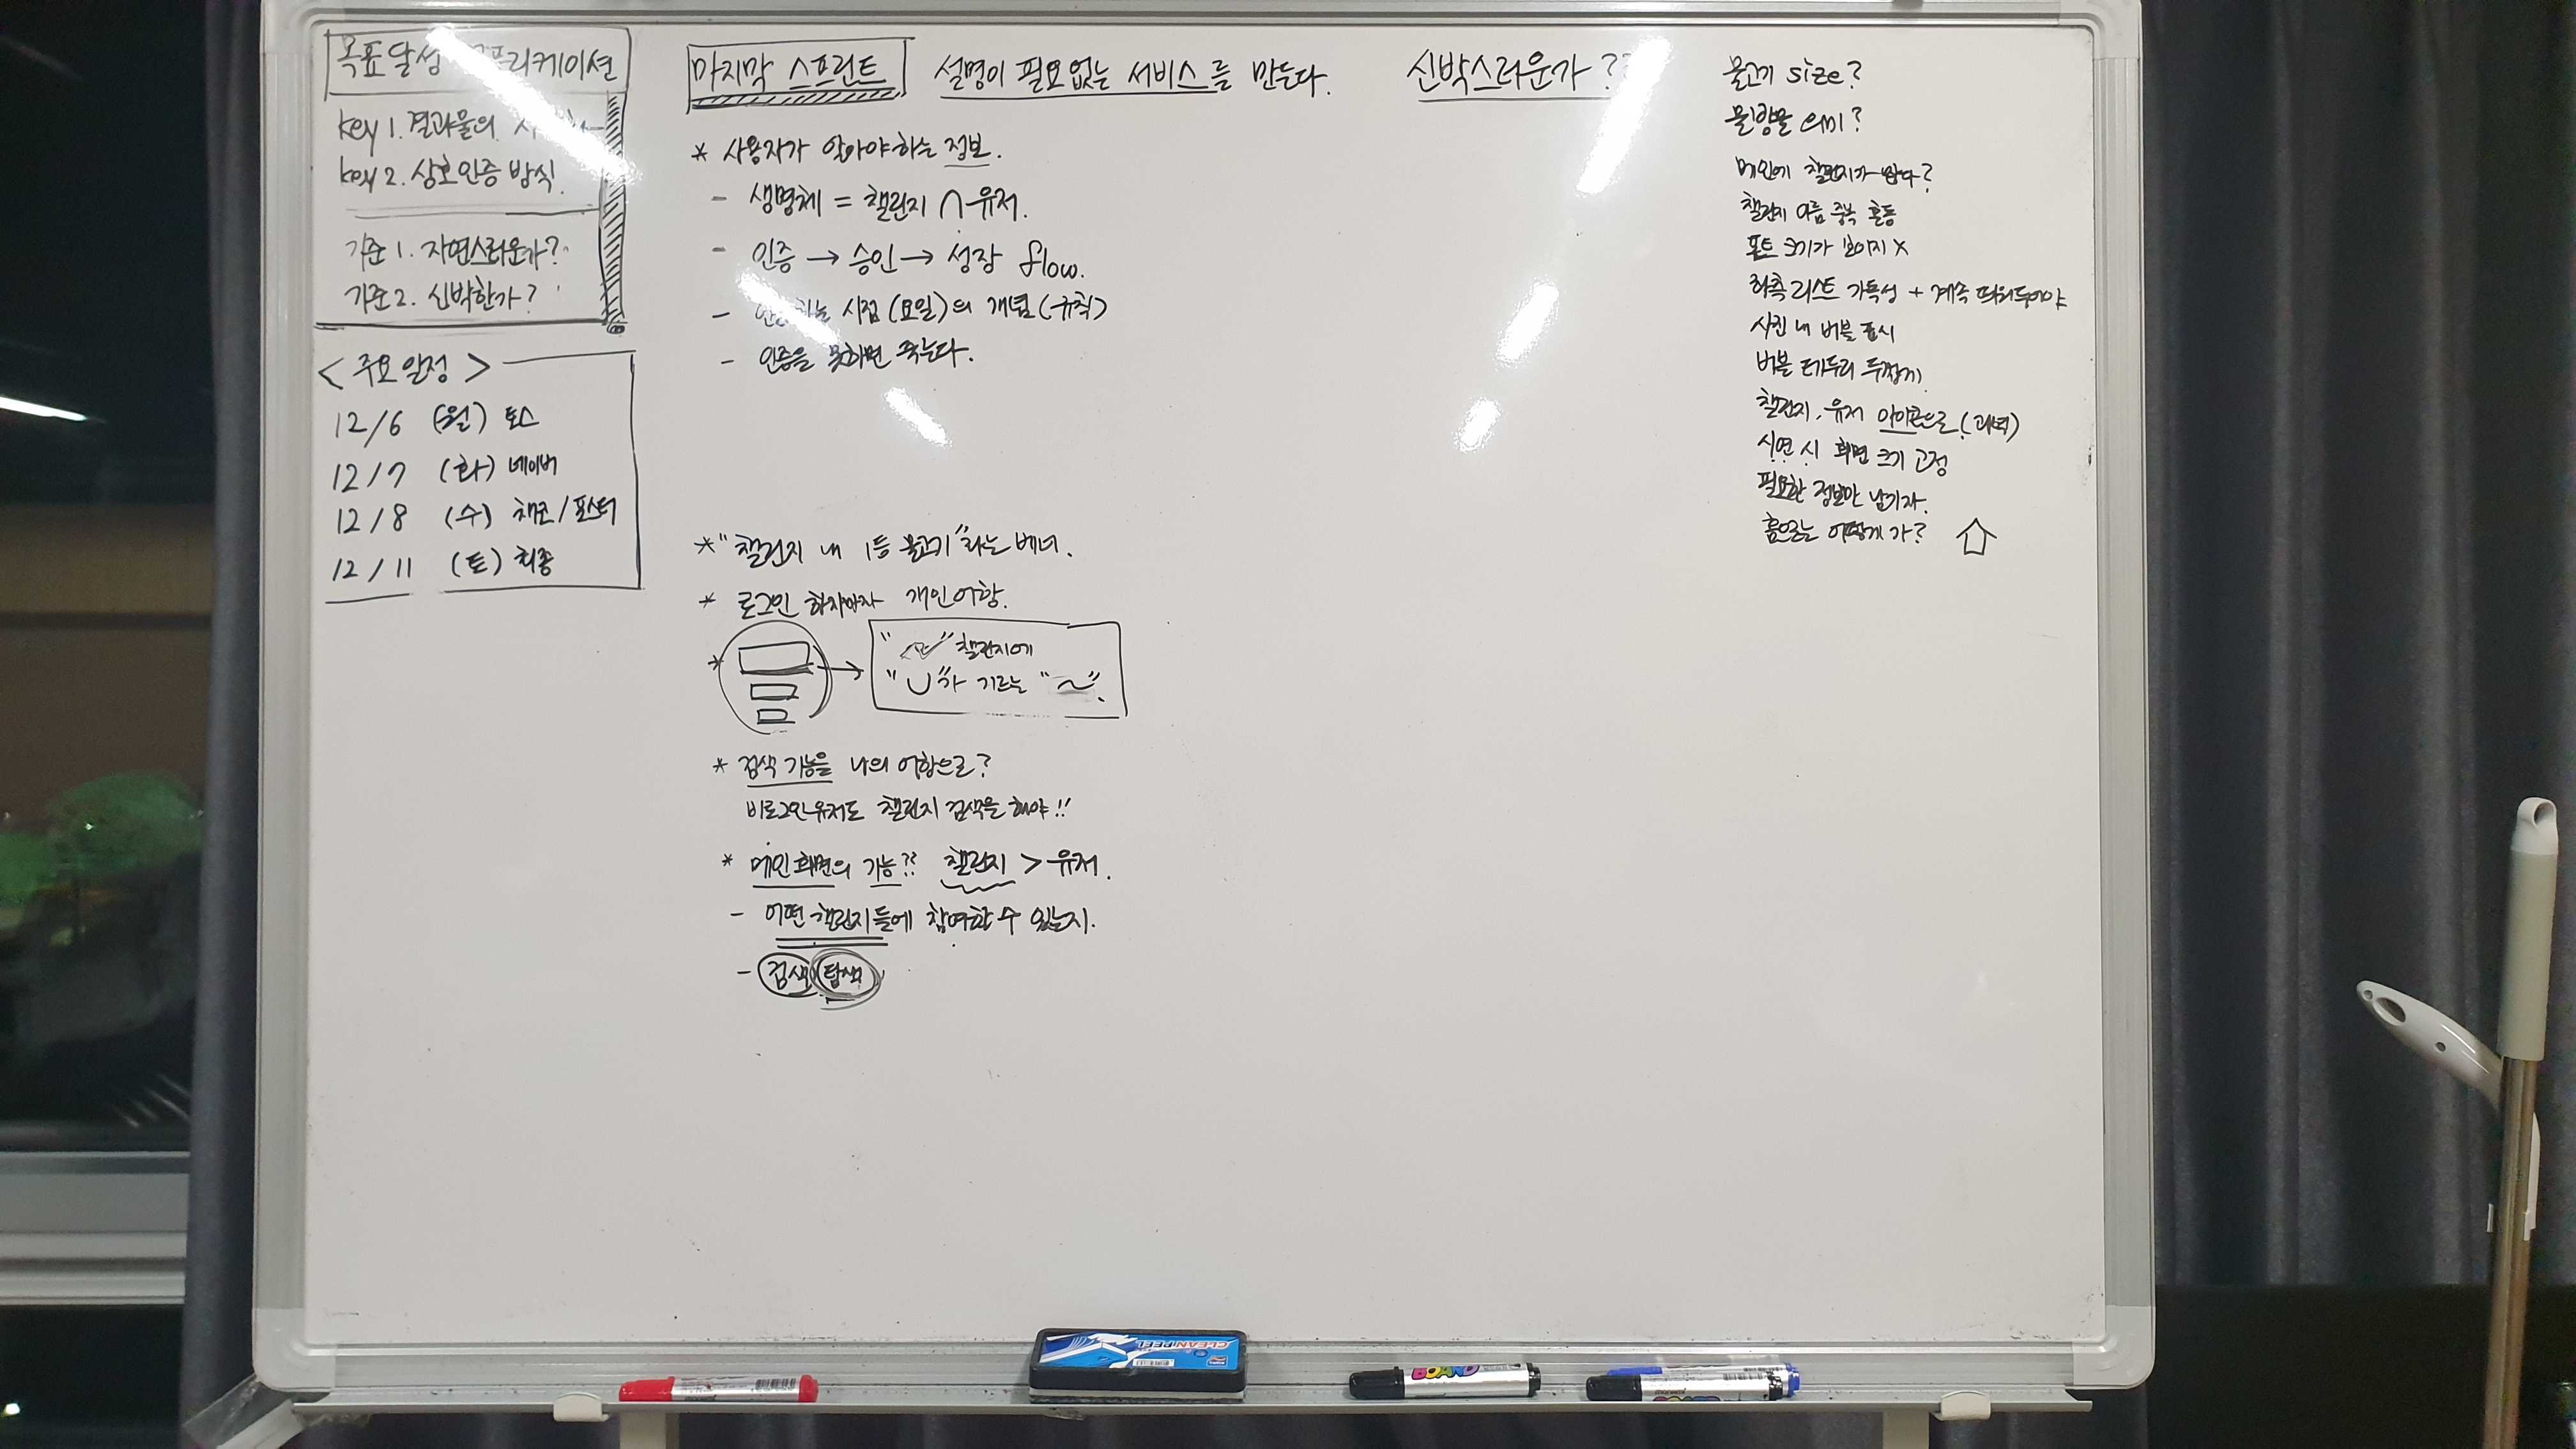 목표달성 어플리케이션
key 1. 결과물의
key 2. 상호인증 방식.
기준 1. 자연스러운가?
기준 2. 신박한가?
< 주요일정 >
12/6 (월) 토스
12/7 (화) 네이버
12/8 (수) 채코/포스터
12/11 (토) 최종
마지막 스프린트 설명이 필요없는 서비스를 만든다.
* 사용자가 알아야하는 정보.
- 생명체 = 챌린지 ∩ 유저.
- 인증 → 승인 → 성장 flow.
- 시점 (요일)의 개념 (규칙)
- 인증을 못하면 죽는다.
* "챌린지 내 1등 물고기"라는 베너.
* 로그인 하자마자 개인어항.
* → " " 챌린지에
" "가 기르는 " ~ ".
* 검색 기능을 나의 어항으로?
비로그인유저도 챌린지 검색을 해야!!
* 메인화면의 기능?? 챌린지 > 유저.
- 어떤 챌린지들에 참여할 수 있는지.
- 검색 탐색
신박스러운가??
물고기 size?
물방울 의미?
메인에 챌린지가 뜬다?
챌린지 이름 중복 혼동
폰트 크기가 보이지 X
좌측 리스트 가독성 + 계속 띄워두어야
사진 내 버블 표시
버블 테두리 두껍게
챌린지, 유저 아이콘으로 (과녁)
시연 시 화면 크기 고정
필요한 정보만 남기자.
홈으로는 어떻게 가?
CLEAN PEEL
BOARD